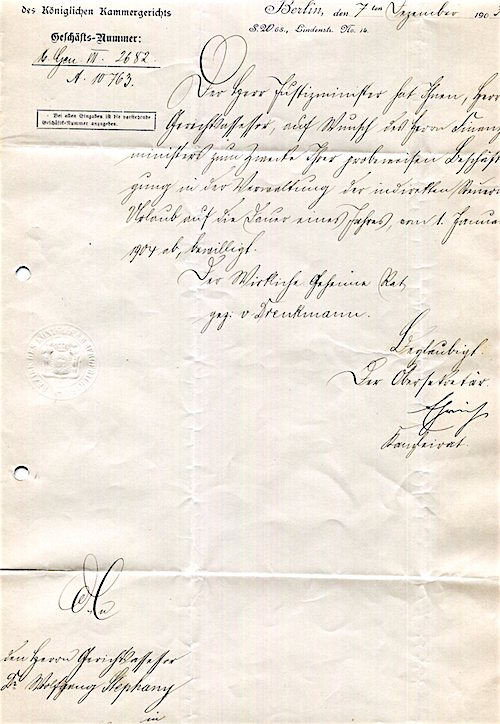 des Königlichen Kammergerichts
Berlin, den 7ten Dezember 190
S.W. 68, Lindenstr. No. 14.
Geschäfts-Nummer:
Gen. III. 2682
A. 10763.
Bei allen Eingaben ist die vorstehende
Geschäfts-Nummer anzugeben.
Der Herr Justizminister hat Ihnen, Herr
Gerichtsassessor, auf Wunsch des Herrn Finanz
ministers zum Zwecke Ihrer probeweisen Beschäfti
gung in der Verwaltung der indirekten Steuern
Urlaub auf die Dauer eines Jahres, vom 1. Janua
1904 ab, bewilligt.
Der Wirkliche Geheime Rat
gez. v Drenkmann.
Beglaubigt.
Der Obersekretär.
Kanzleirat.
An
den Herrn Gerichtsassessor
Dr. Wolfgang Stephany
in